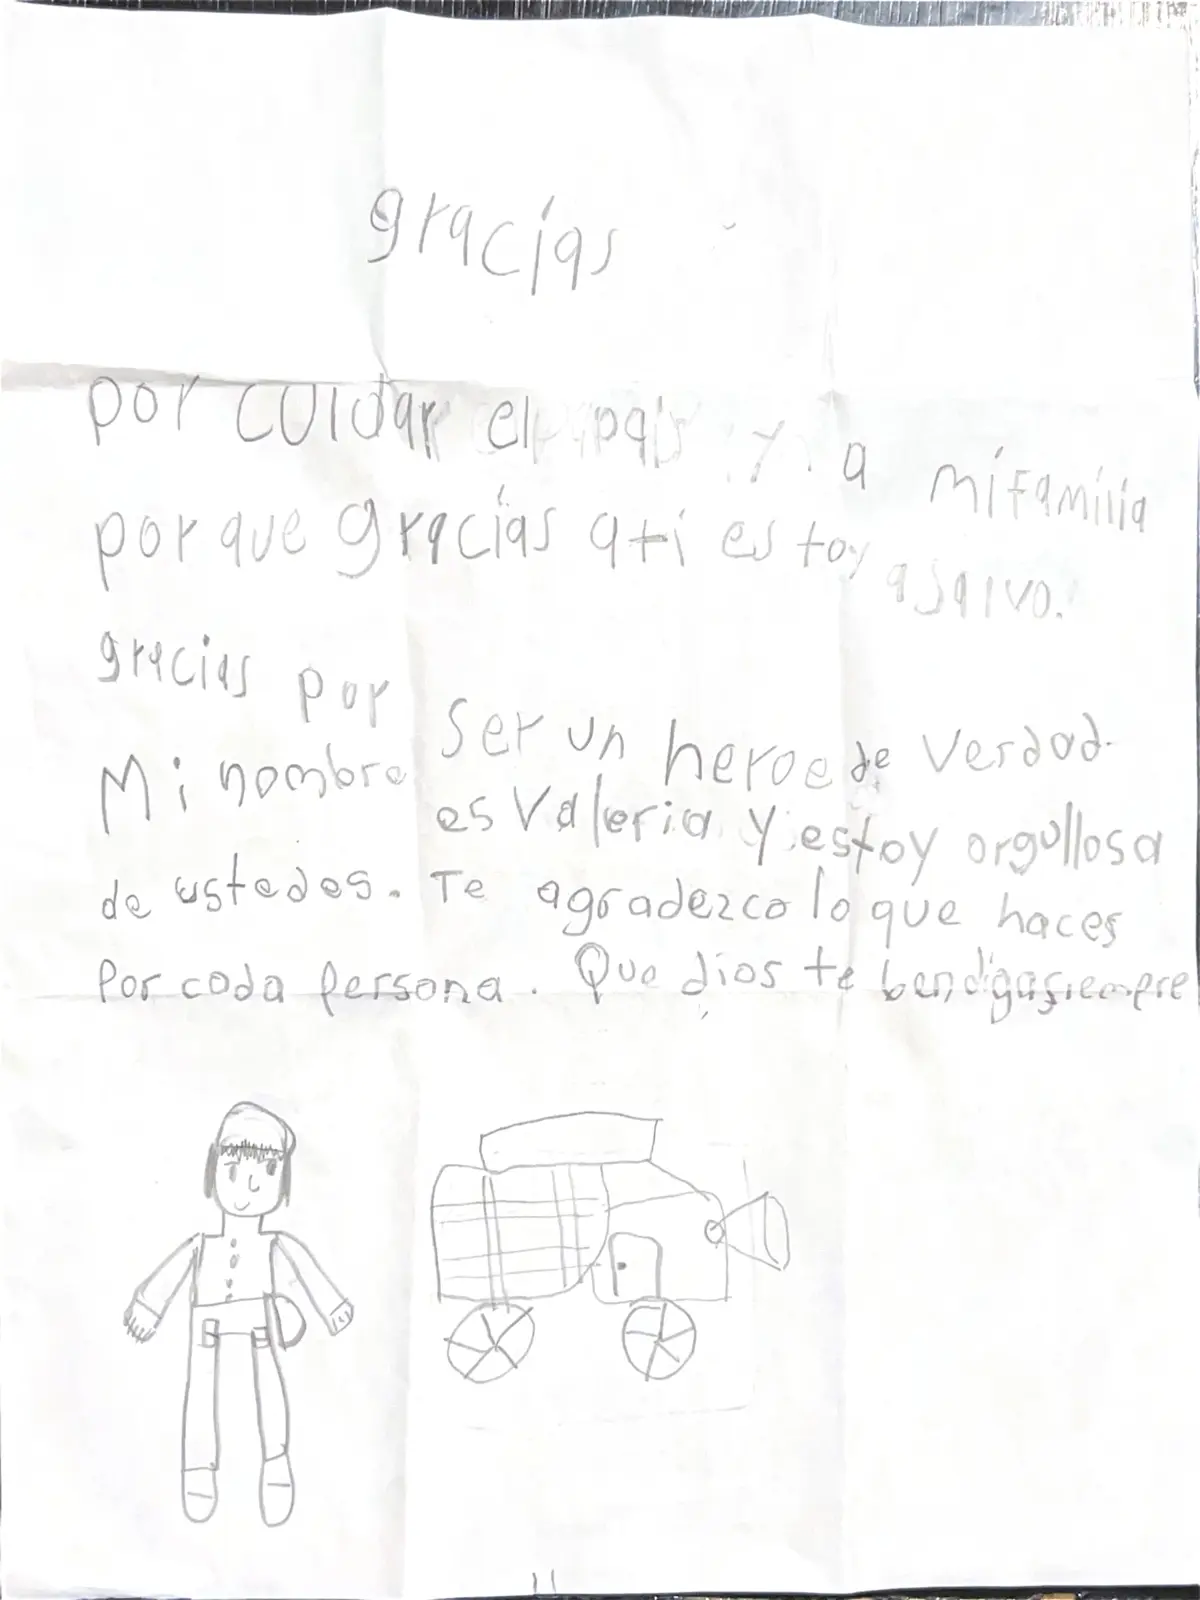 gracias
por cuidar el pais y a mi familia
por que gracias a ti estoy a salvo.
gracias por ser un heroe de verdad.
Mi nombre es Valeria y estoy orgullosa
de ustedes. Te agradezco lo que haces
Por coda persona. Que dios te bendiga siempre